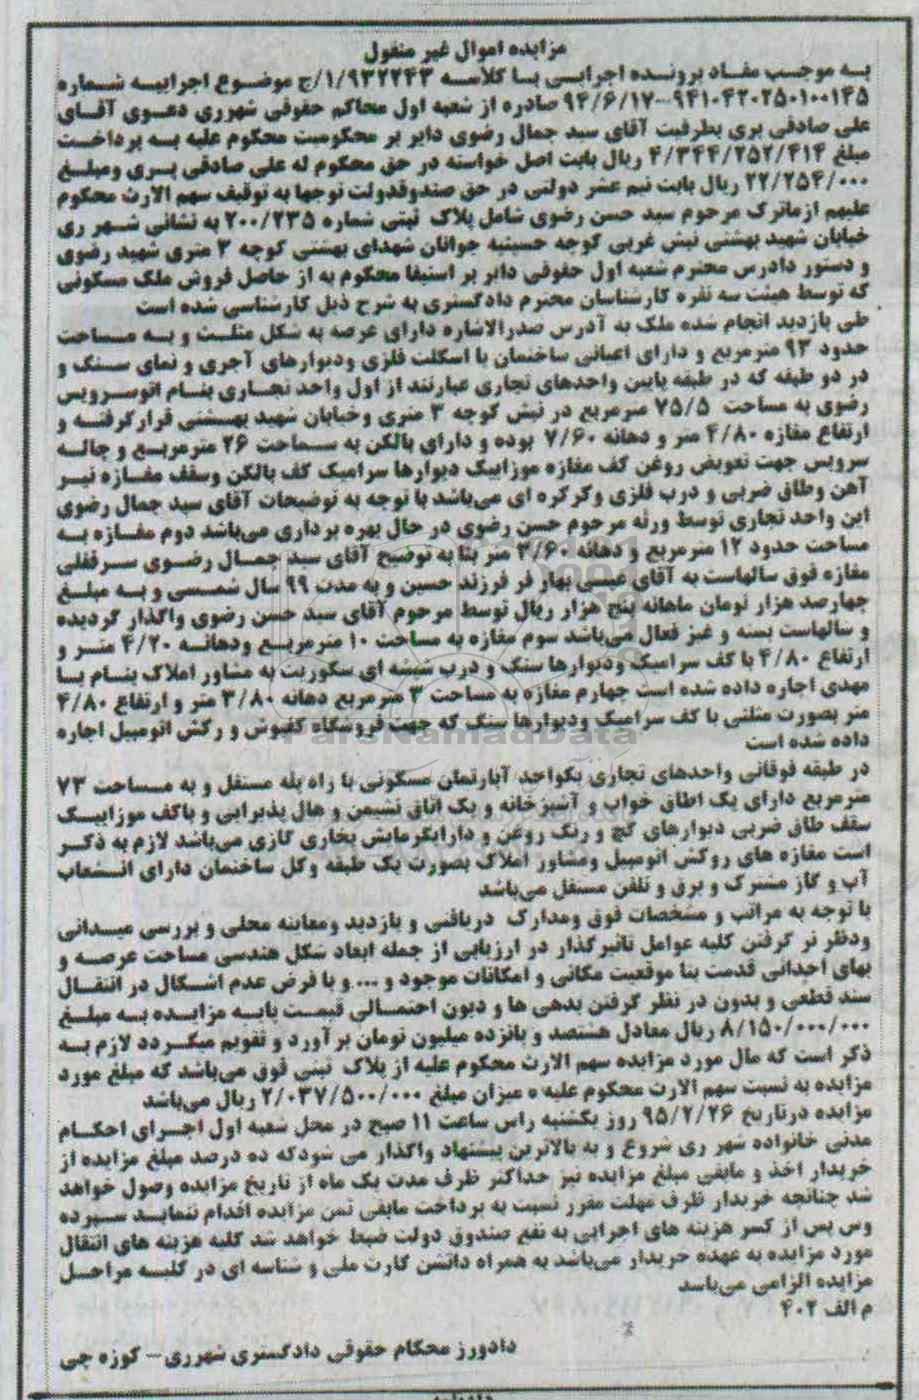 مزایده اموال غیر منقول
به موجب مفاد پرونده اجرایی با کلاسه ۱/۹۳۲۲۴۳/ج موضوع اجراییه شماره
۹۴۱۰۴۲۰۲۵۰۱۰۰۱۴۵-۹۴/۶/۱۷ صادره از شعبه اول محاکم حقوقی شهرری دعوی آقای
علی صادقی بری بطرفیت آقای سید جمال رضوی دایر بر محکومیت محکوم علیه به پرداخت
مبلغ ۴/۳۴۴/۲۵۲/۴۱۴ ریال بابت اصل خواسته در حق محکوم له علی صادقی بری ومبلغ
۲۲/۲۵۴/۰۰۰ ریال بابت نیم عشر دولتی در حق صندوقدولت توجها به توقیف سهم الارث محکوم
علیهم ازماترک مرحوم سید حسن رضوی شامل پلاک ثبتی شماره ۲۰۰/۲۳۵ به نشانی شهر ری
خیابان شهید بهشتی نبش غربی کوچه حسینیه جوانان شهدای بهشتی کوچه ۳ متری شهید رضوی
و دستور دادرس محترم شعبه اول حقوقی دایر بر استیفا محکوم به از حاصل فروش ملک مسکونی
که توسط هیئت سه نفره کارشناسان محترم دادگستری به شرح ذیل کارشناسی شده است
طی بازدید انجام شده ملک به آدرس صدرالاشاره دارای عرصه به شکل مثلث و به مساحت
حدود ۹۳ مترمربع و دارای اعیانی ساختمان با اسکلت فلزی ودیوارهای آجری و نمای سنگ و
در دو طبقه که در طبقه پایین واحدهای تجاری عبارتند از اول واحد تجاری بنام اتوسرویس
رضوی به مساحت ۷۵/۵ مترمربع در نبش کوچه ۳ متری وخیابان شهید بهشتی قرارگرفته و
ارتفاع مغازه ۴/۸۰ متر و دهانه ۷/۶۰ بوده و دارای بالکن به سماحت ۲۶ مترمربع و چاله
سرویس جهت تعویض روغن کف مغازه موزاییک دیوارها سرامیک کف بالکن وسقف مغازه تیر
آهن وطاق ضربی و درب فلزی وکرکره ای می‌باشد با توجه به توضیحات آقای سید جمال رضوی
این واحد تجاری توسط ورثه مرحوم حسن رضوی در حال بهره برداری می‌باشد دوم مغازه به
مساحت حدود ۱۲ مترمربع و دهانه ۳/۶۰ متر بنا به توضیح آقای سید جمال رضوی سرقفلی
مغازه فوق سالهاست به آقای عیسی بهار فر فرزند حسین و به مدت ۹۹ سال شمسی و به مبلغ
چهارصد هزار تومان ماهانه پنج هزار ریال توسط مرحوم آقای سید حسن رضوی واگذار گردیده
و سالهاست بسته و غیز فعال می‌باشد سوم مغازه به مساحت ۱۰ مترمربع ودهانه ۴/۲۰ متر و
ارتفاع ۴/۸۰ با کف سرامیک ودیوارها سنگ و درب شیشه ای سکوریت به مشاور املاک بنام یا
مهدی اجاره داده شده است چهارم مغازه به مساحت ۳ مترمربع دهانه ۳/۸۰ متر و ارتفاع ۴/۸۰
متر بصورت مثلثی با کف سرامیک ودیوارها سنگ که جهت فروشگاه کفپوش و رکش اتومبیل اجاره
داده شده است
ParsNamadData
در طبقه فوقانی واحدهای تجاری یکواحد آپارتمان مسکونی با راه پله مستقل و به مساحت ۷۳
مترمربع دارای یک اطاق خواب و آشپزخانه و یک اتاق نشیمن و هال پذیرایی و باکف موزاییک
سقف طاق ضربی دیوارهای گچ و رنگ روغن و دارایگرمایش بخاری گازی می‌باشد لازم به ذکر
است مغازه های روکش اتومبیل ومشاور املاک بصورت یک طبقه وکل ساختمان دارای انشعاب
آب و گاز مشترک و برق و تلفن مستقل می‌باشد
با توجه به مراتب و مشخصات فوق ومدارک دریافتی و بازدید ومعاینه محلی و بررسی میدانی
ودظر نر گرفتن کلیه عوامل تاثیرگذار در ارزیابی از جمله ابعاد شکل هندسی مساحت عرصه و
بهای احداثی قدمت بنا موقعیت مکانی و امکانات موجود و ... و با فرض عدم اشکال در انتقال
سند قطعی و بدون در نظر گرفتن بدهی ها و دیون احتمالی قیمت پایه مزایده به مبلغ
۸/۱۵۰/۰۰۰/۰۰۰ ریال معادل هشتصد و پانزده میلیون تومان برآورد و تقویم میگردد لازم به
ذکر است که مال مورد مزایده سهم الارث محکوم علیه از پلاک ثبتی فوق می‌باشد که مبلغ مورد
مزایده به نسبت سهم الارث محکوم علیه ه میزان مبلغ ۲/۰۳۷/۵۰۰/۰۰۰ ریال می‌باشد
مزایده درتاریخ ۹۵/۲/۲۶ روز یکشنبه راس ساعت ۱۱ صبح در محل شعبه اول اجرای احکام
مدنی خانواده شهر ری شروع و به بالاترین پیشنهاد واگذار می شودکه ده درصد مبلغ مزایده از
خریدار اخذ و مابقی مبلغ مزایده نیز حداکثر ظرف مدت یک ماه از تاریخ مزایده وصول خواهد
شد چنانچه خریدار ظرف مهلت مقرر نسبت به پرداخت مابقی ثمن مزایده اقدام ننماید سپرده
وس پس از کسر هزینه های اجرایی به نفع صندوق دولت ضبط خواهد شد کلیه هزینه های انتقال
مورد مزایده به عهده خریدار می‌باشد به همراه داشتن کارت ملی و شناسه ای در کلیه مراحل
مزایده الزامی می‌باسد
م الف ۴۰۲
دادورز محکام حقوقی دادگستری شهرری- کوزه چی